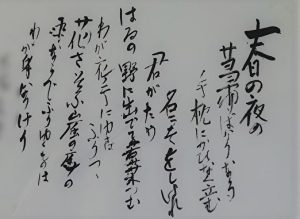 春の夜の
夢ばかりなる
手枕にかひなく立む
名こそをしけれ
君がため
はるの野に出でて若菜つむ
わが衣手にゆきは
ふりつゝ
花さそふ嵐の庭の
雪ならでふりゆくものは
わが身なりけり